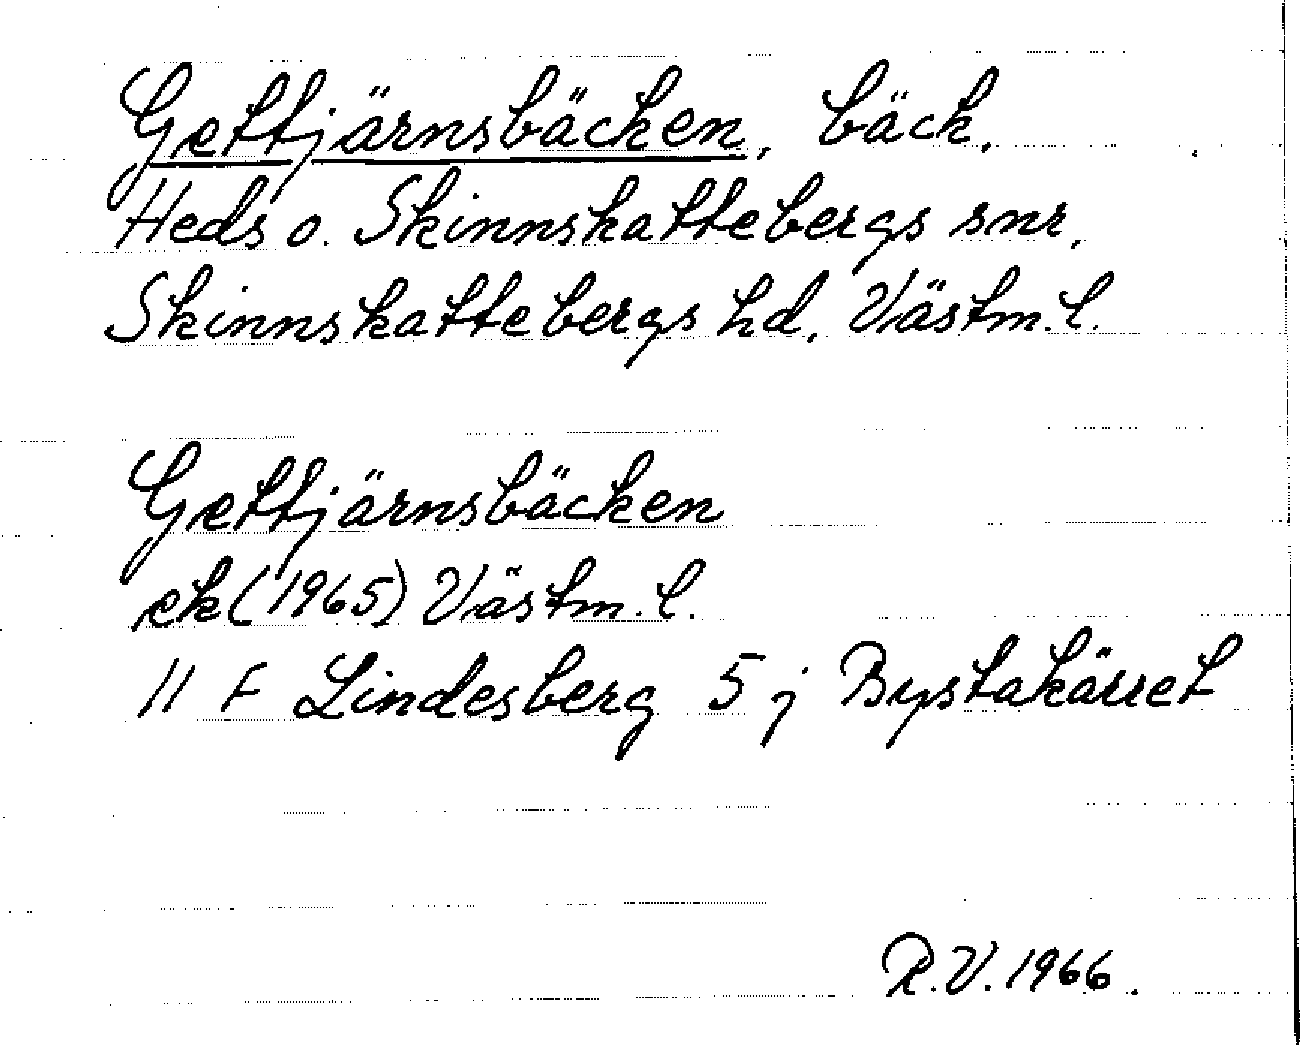 Gettjärnsbäcken, bäck.
Heds o. Skinnskattebergs snr,
Skinnskattebergs hd, Västm. l.
Gettjärnsbäcken
ek (1965) Västm. l.
11 F Lindesberg 5 j Bystakärret
R.V. 1966.